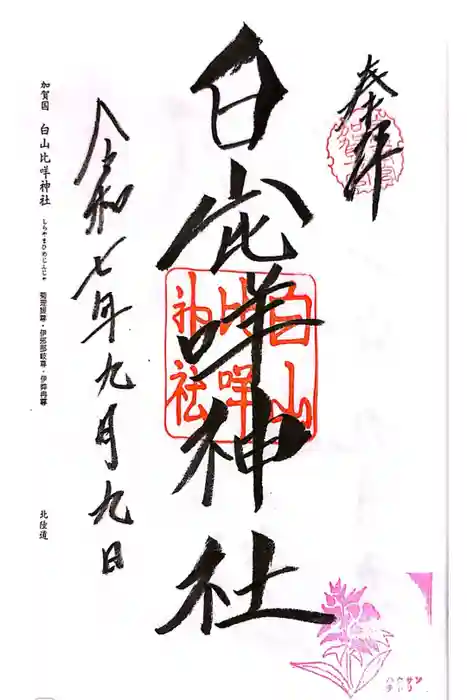 奉拝
白山比咩神社
白山
比咩
神社
令和七年九月九日
加賀国 白山比咩神社 しらやまひめじんじゃ 菊理媛尊・伊弉諾尊・伊弉冉尊 北陸道
ハクサン
チドリ